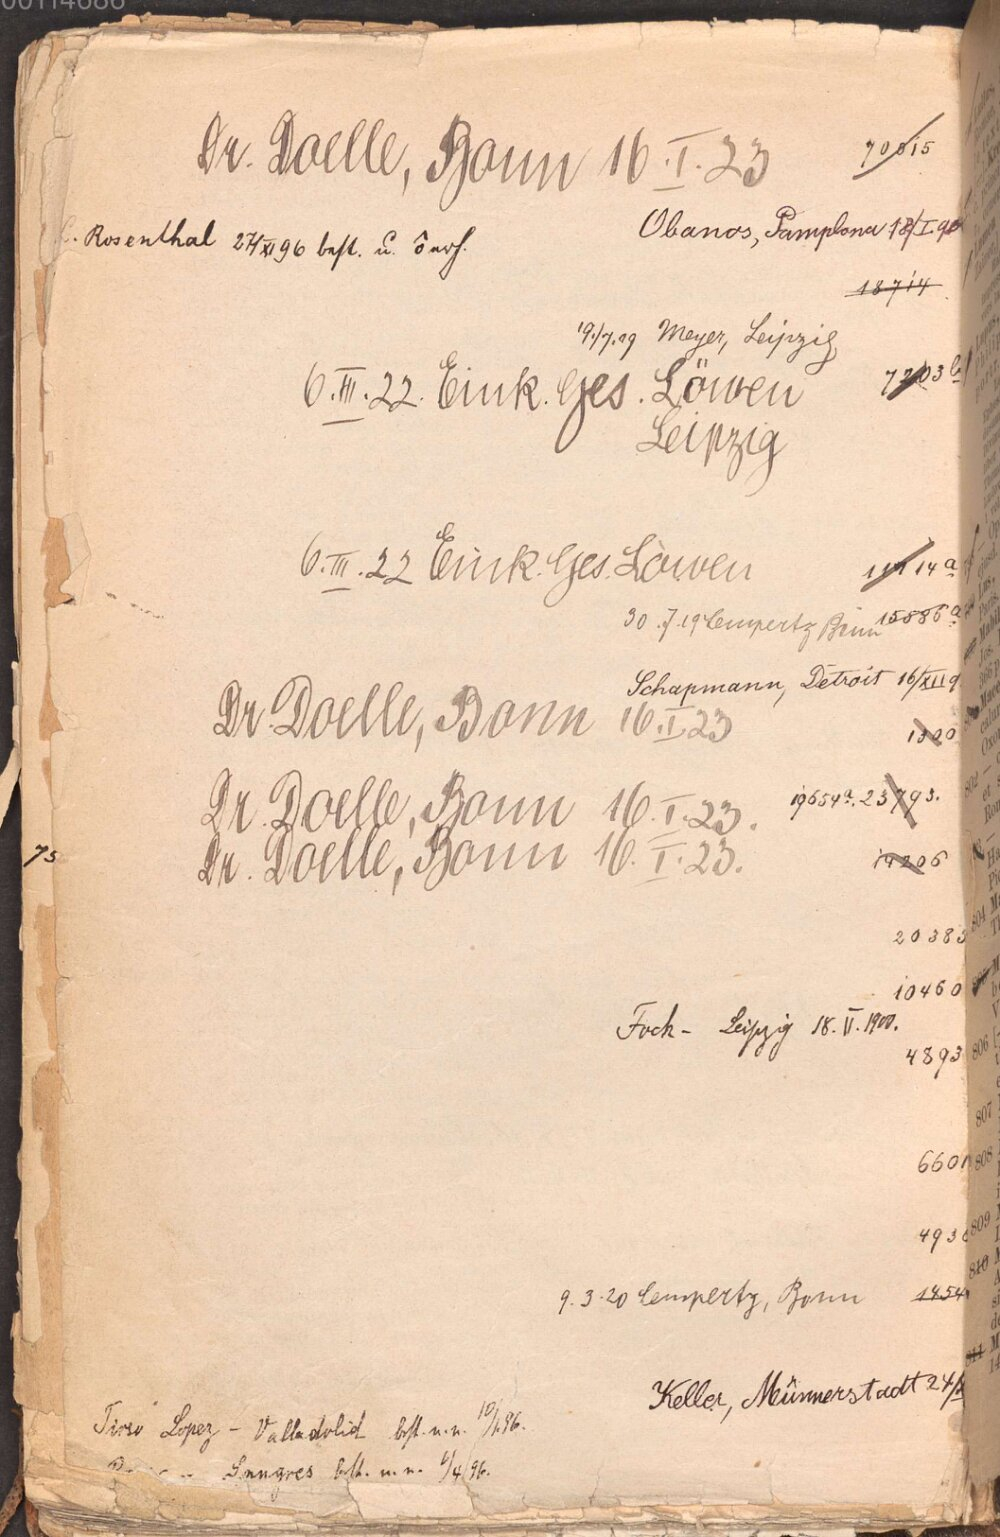 00114686
Dr. Doelle, Bonn 16.I.23 70615
Rosenthal 27/XI 96 best. u. erh.
Obanos, Pamplona 18/I.96
18714
19./7.19 Meyer, Leipzig
6.III.22. Eink. Ges. Löwen 7203b
Leipzig
6.III.22 Eink. Ges. Löwen 14a
30.7.19 Lempertz Bonn 15886a
Schapmann, Detroit 16/XII 9
Dr. Doelle, Bonn 16.I.23 1300
Dr. Doelle, Bonn 16.I.23. 19654a. 23793.
75 Dr. Doelle, Bonn 16.I.23. 19206
20383
10460
Fock - Leipzig 18.V.1900.
4893
6601
493
9.3.20 Lempertz, Bonn 1454
Keller, Münnerstadt 24/X
Tirso Lopez - Valladolid best. u. n. 10/1.96.
best. u. n. 9/4 96.
802
804
806
807
808
809
810
811